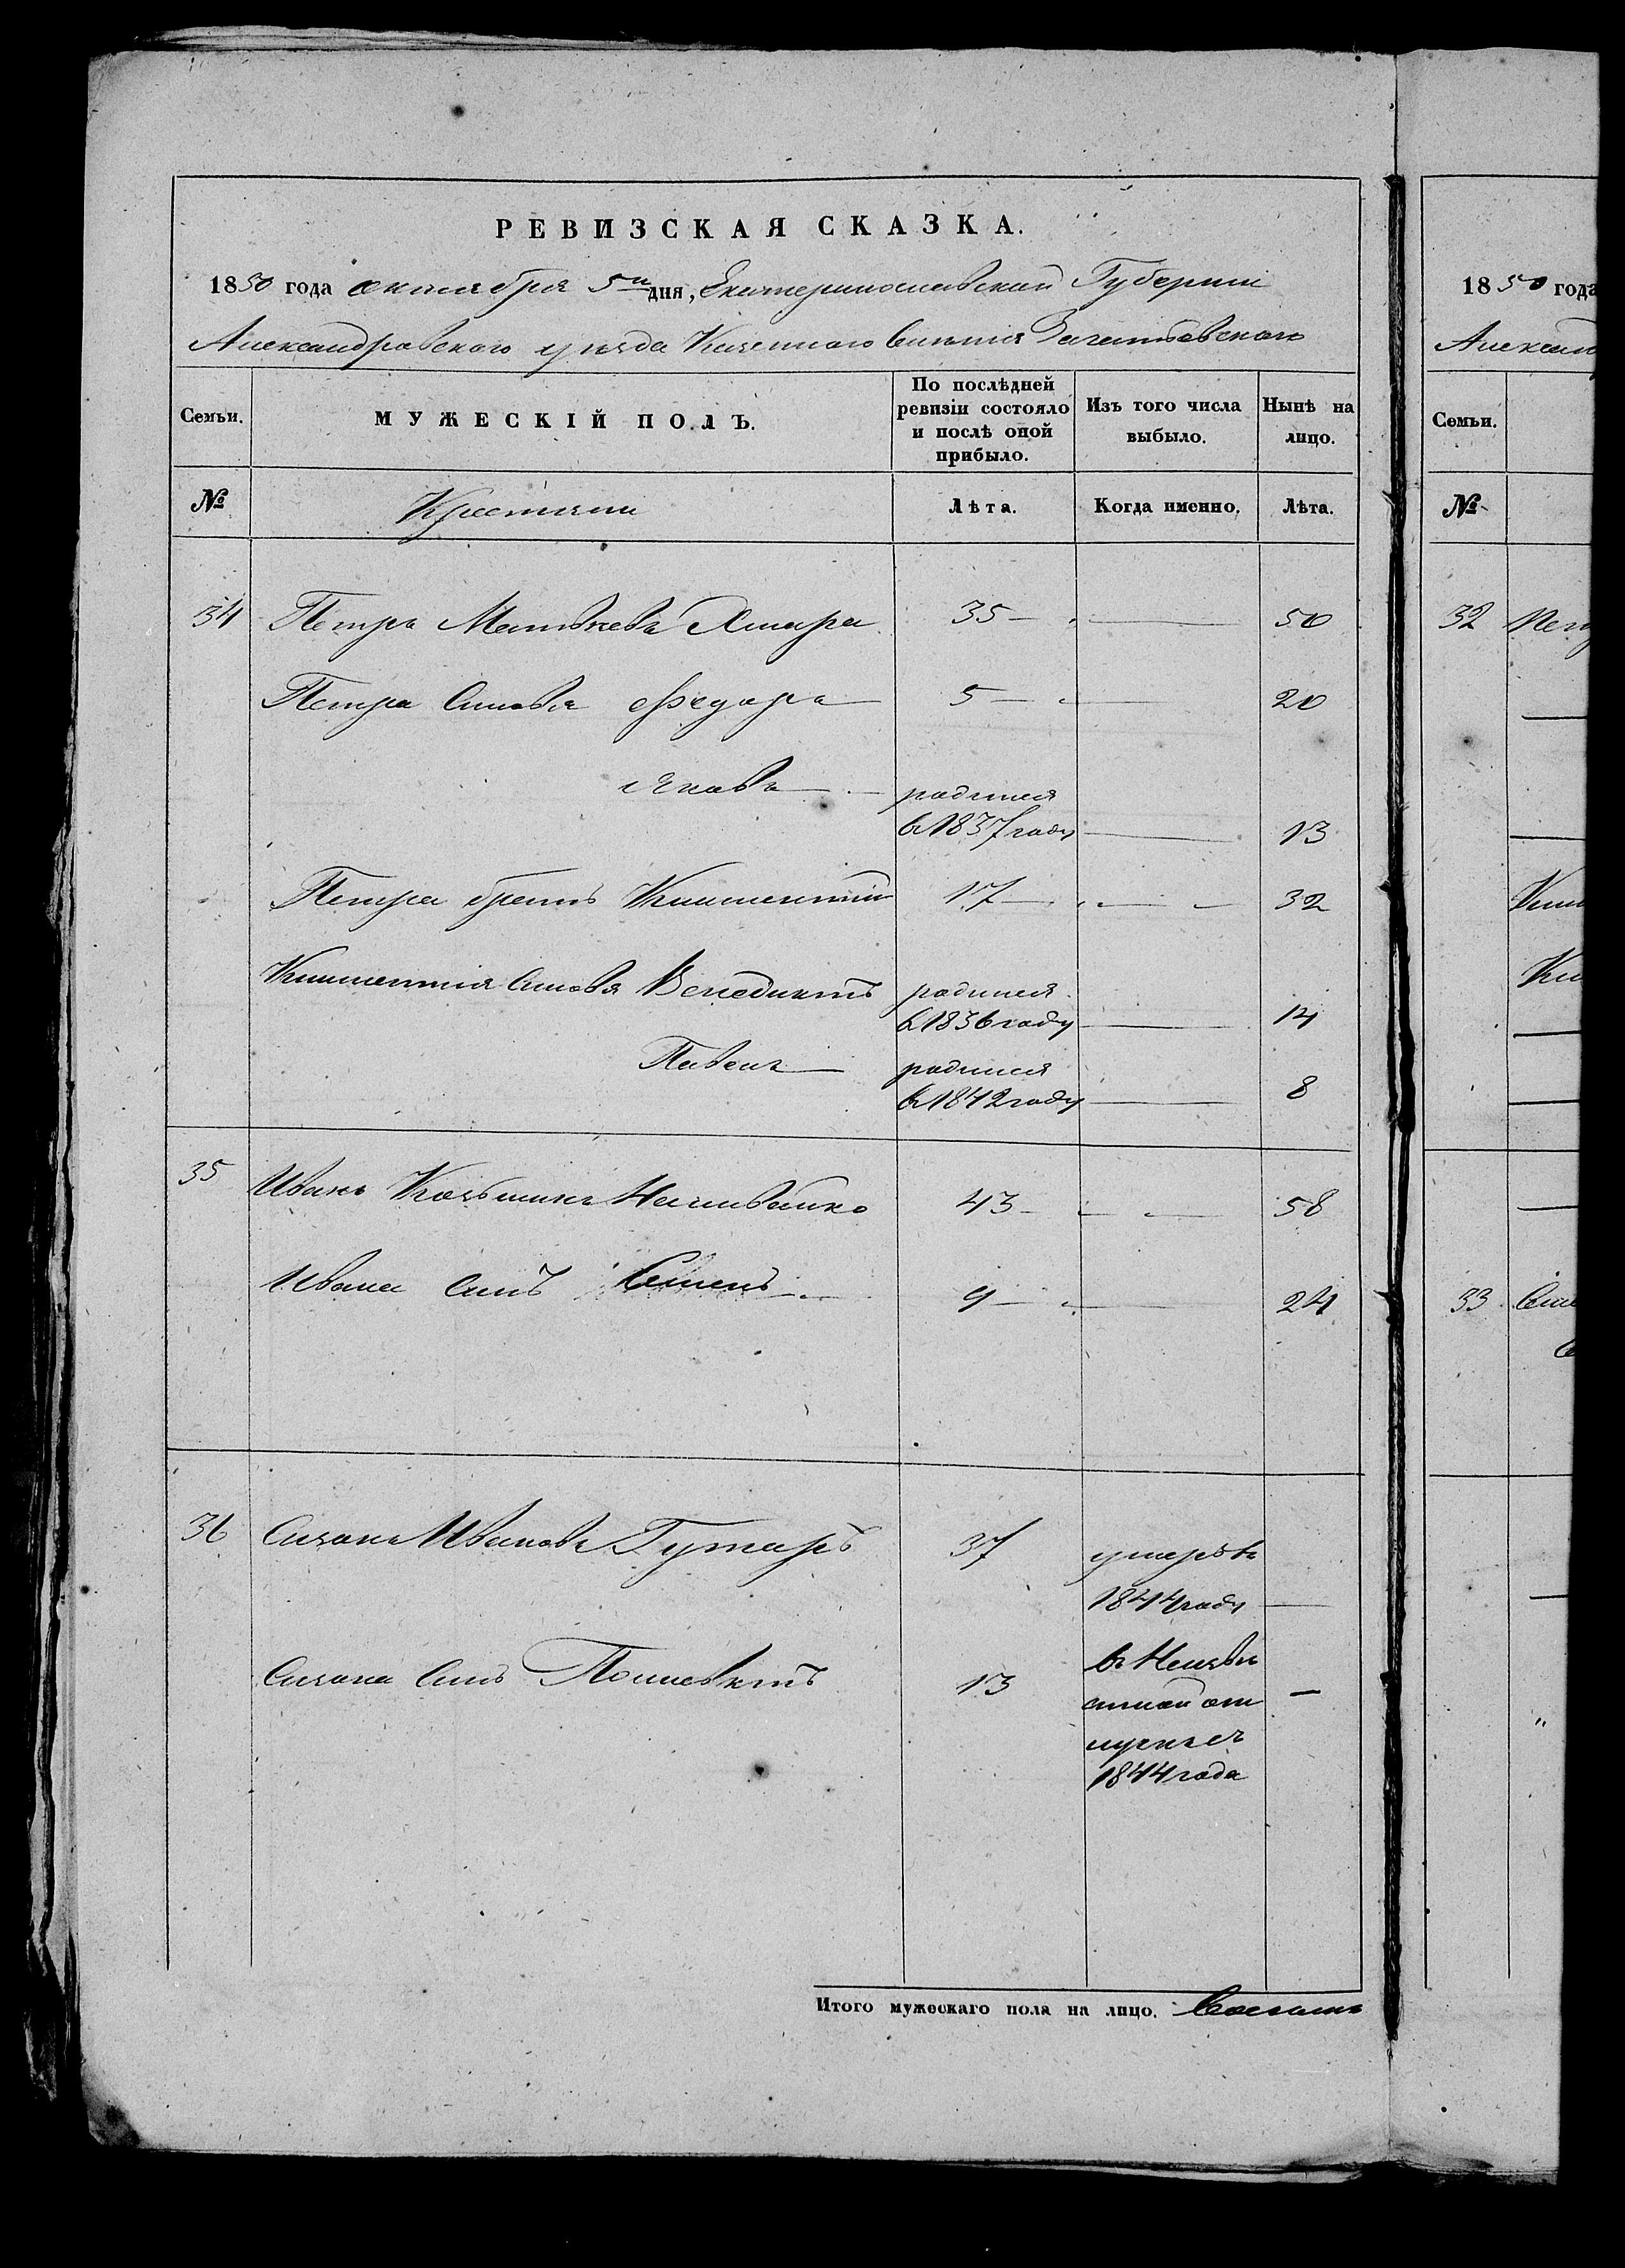 РЕВИЗСКАЯ СКАЗКА.
1850 года октября 5го дня, Екатеринославской Губернии
Александровского уезда Казенного Селения
Семьи.
МУЖЕСКІЙ ПОЛЪ.
По послѣдней ревизіи состояло и послѣ оной прибыло.
Изъ того числа выбыло.
Нынѣ на лицо.
№
Крестьяни
Лѣта.
Когда именно.
Лѣта.
34 Петръ Матвѣевъ Хмара 35 — 50
Петра Сыновья Федоръ — 5 — 20
Яковъ — родился
в 1837 году — 13
Петра братъ Климентий 17 — 32
Климентия Сыновя Венедиктъ родился
в 1836 году — 14
Павелъ — родился
в 1842 году — 8
35 Иванъ Козьминъ Наливайко 43 — 58
Ивана Сынъ Семенъ — 9 — 24
36 Созонъ Ивановъ 37 умеръ въ
1844 году —
Созона Сынъ Полиевктъ 13 въ Неизве
стной от —
лучке съ
1844 года
Итого мужескаго пола на лицо. Восемь
1850 года
Семьи.
№
32
33